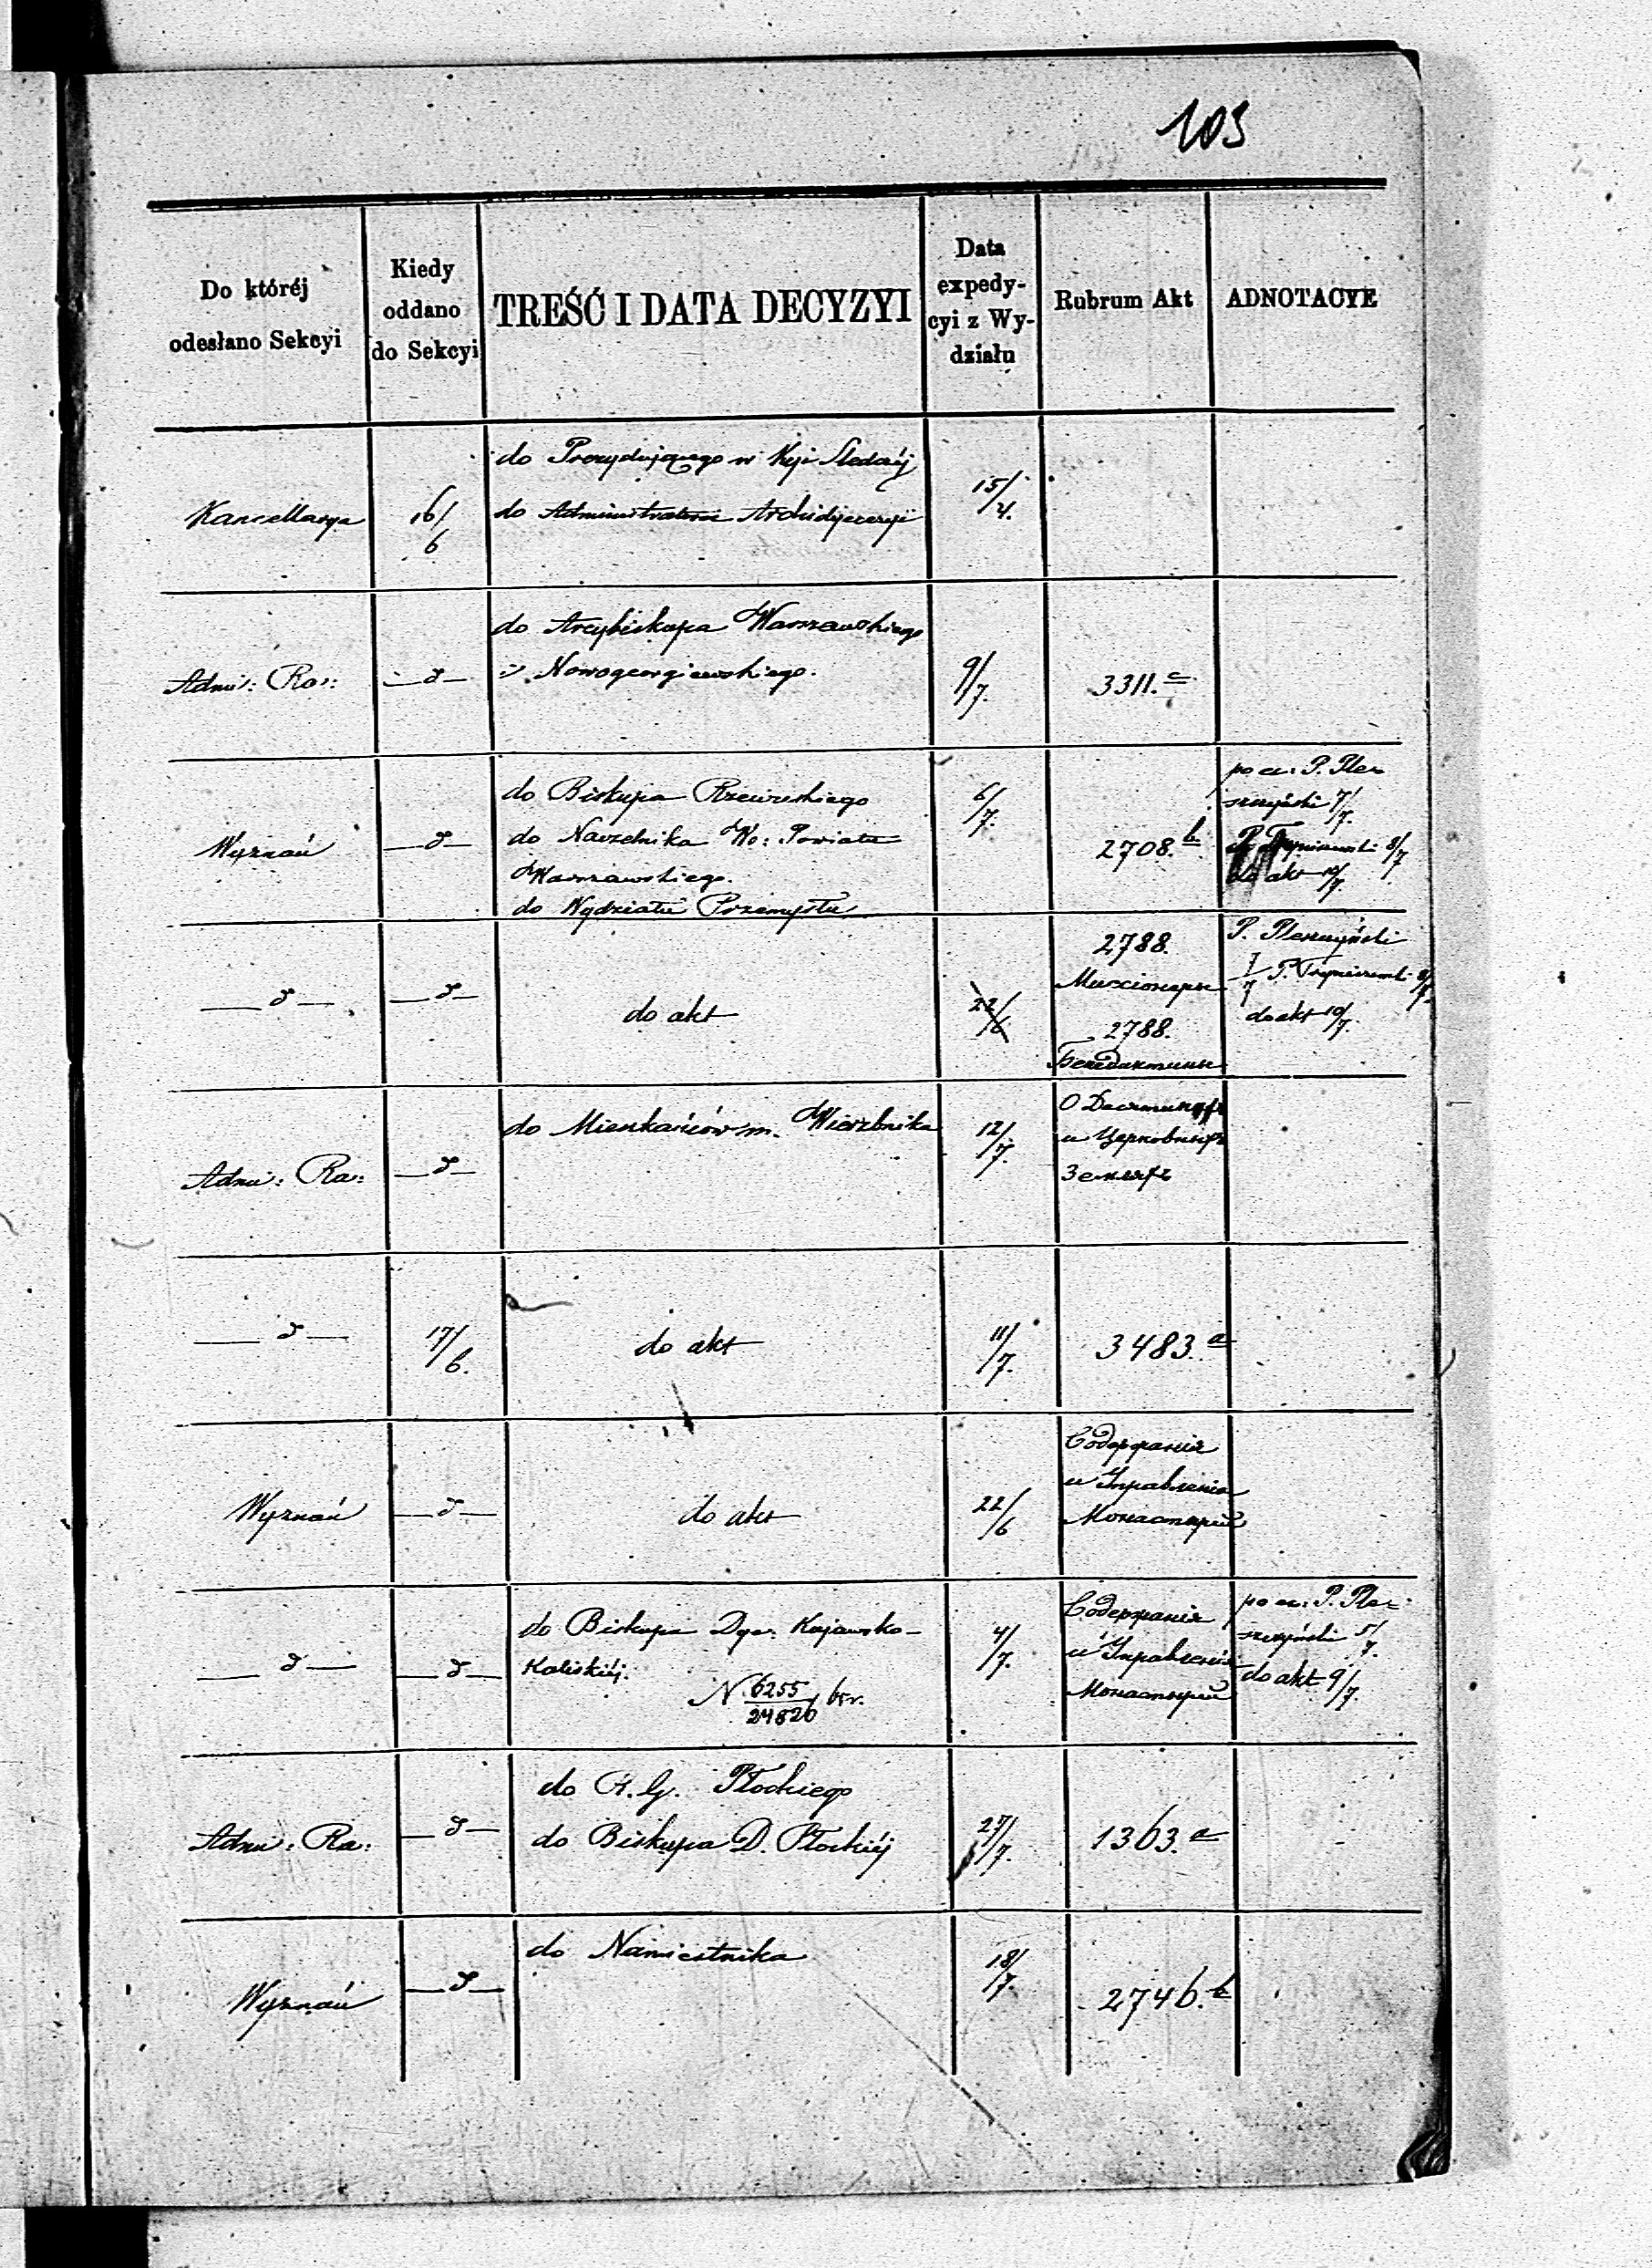 103
Do któréj
odesłano Sekcyi
Kiedy
oddano
do Sekcyi
TREŚĆ I DATA DECYZYI
Data
expedy-
cyi z Wy-
działu
Rubrum Akt
ADNOTACYE
Kancellarya
16/6
do Prezydującego w Kyi Śledczéj
do Administratora Archidyecezyi
15/4.
Adm: Ra:
—d—
do Arcybiskupa Warszawskiego
i Nowogeorgiewskiego.
9/7.
3311.c
Wyznań
—d—
do Biskupa Rzewuskiego
do Naczelnika Wo: Powiatu
Warszawskiego.
do Wydziału Przemysłu
6/7.
2708.b
po cz: P. Ple-
szczyński 7/7.
8/7
do akt 10/7.
—d—
—d—
do akt
22/6
2788.
Миссіонеры
2788.
Бенедиктины
P. Pleszczyński
7/7 P. 8/7
do akt 10/7.
Adm: Ra:
—d—
do Mieszkańców m. Wierzbnika
12/7.
О Десятинахъ
и Церковныхъ
Земляхъ
—d—
17/6.
do akt
11/7.
3483.a
Wyznań
—d—
do akt
22/6
Содержанія
и Управленія
Монастырей
—d—
—d—
do Biskupa Dye. Kujawsko-
Kaliskiéj.
N 6255/24820
4/7.
Содержанія
и Управленія
Монастырей
po cz: P. Ple-
szczyński 5/7.
do akt 9/7.
Adm: Ra:
—d—
do R. G. Płockiego
do Biskupa D. Płockiéj
27/7.
1363.a
Wyznań
—d—
do Namiestnika
18/7.
2746.b